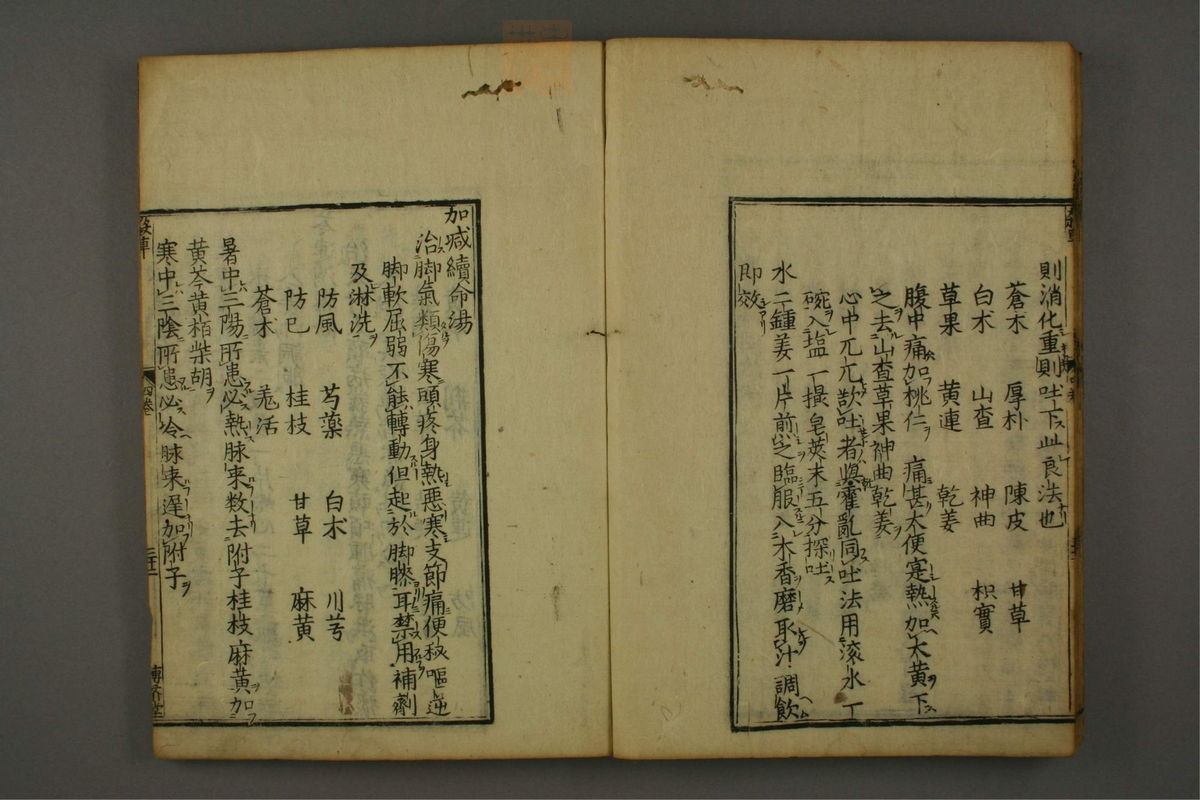 則消化重則吐下此良法也
蒼术 厚朴 陳皮 甘草
白术 山査 神曲 枳實
草果 黄連 乾姜
腹中痛加桃仁 痛甚大便寔熱加大黄下
之去山査草果神曲乾姜
心中兀兀欲吐者與霍亂同吐法用滚水一
碗入塩一撮皂莢末五分探吐
水二鍾姜一片煎之臨服入木香磨取汁調飲
即效
加减續命湯
治脚氣類傷寒頭疼身熱惡寒支節痛便秘嘔逆
脚軟屈弱不能轉動但起於脚膝耳禁用補劑
及淋洗
防風 芍藥 白术 川芎
防已 桂枝 甘草 麻黄
蒼术 羗活
暑中三陽所患必熱脉来数去附子桂枝麻黄加
黄芩黄栢柴胡
寒中三陰所患必冷脉来遅加附子
四卷